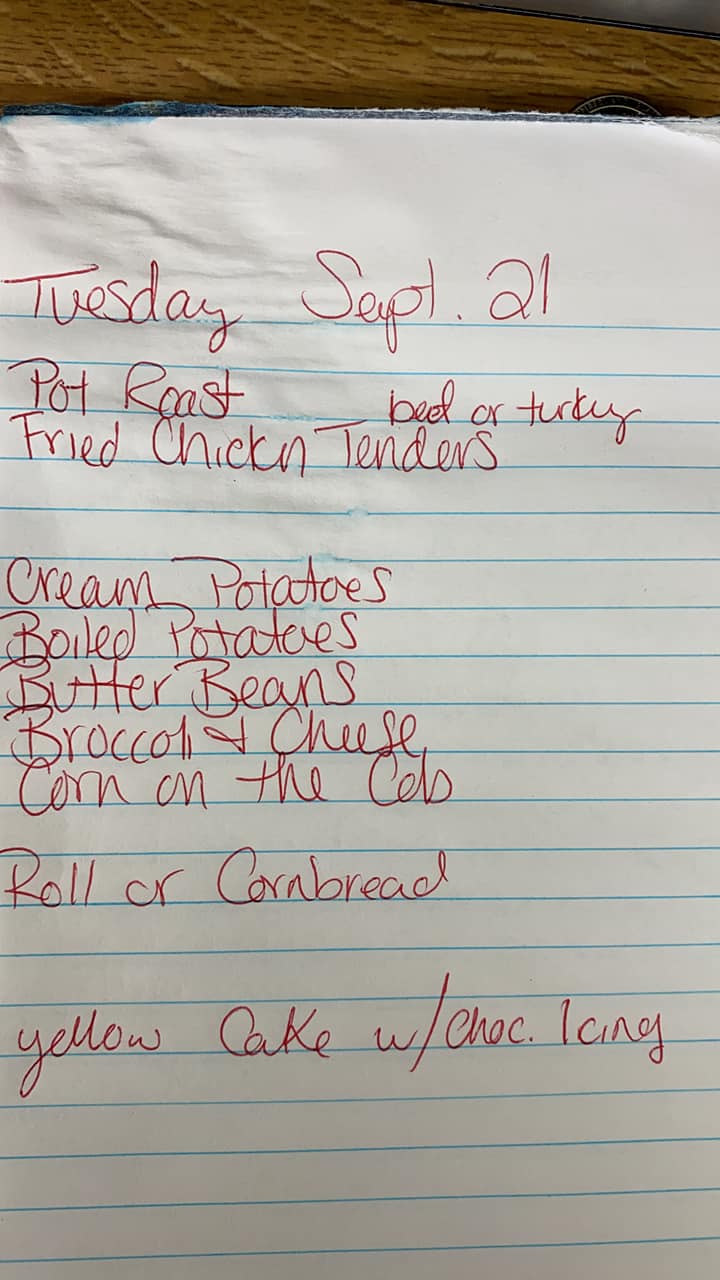 Tuesday Sept. 21
Pot Roast beef or turky
Fried Chickn Tenders
Cream Potatoes
Boiled Potatoes
Butter Beans
Broccoli & Cheese
Corn on the Cob
Roll or Cornbread
yellow Cake w/choc. Icing